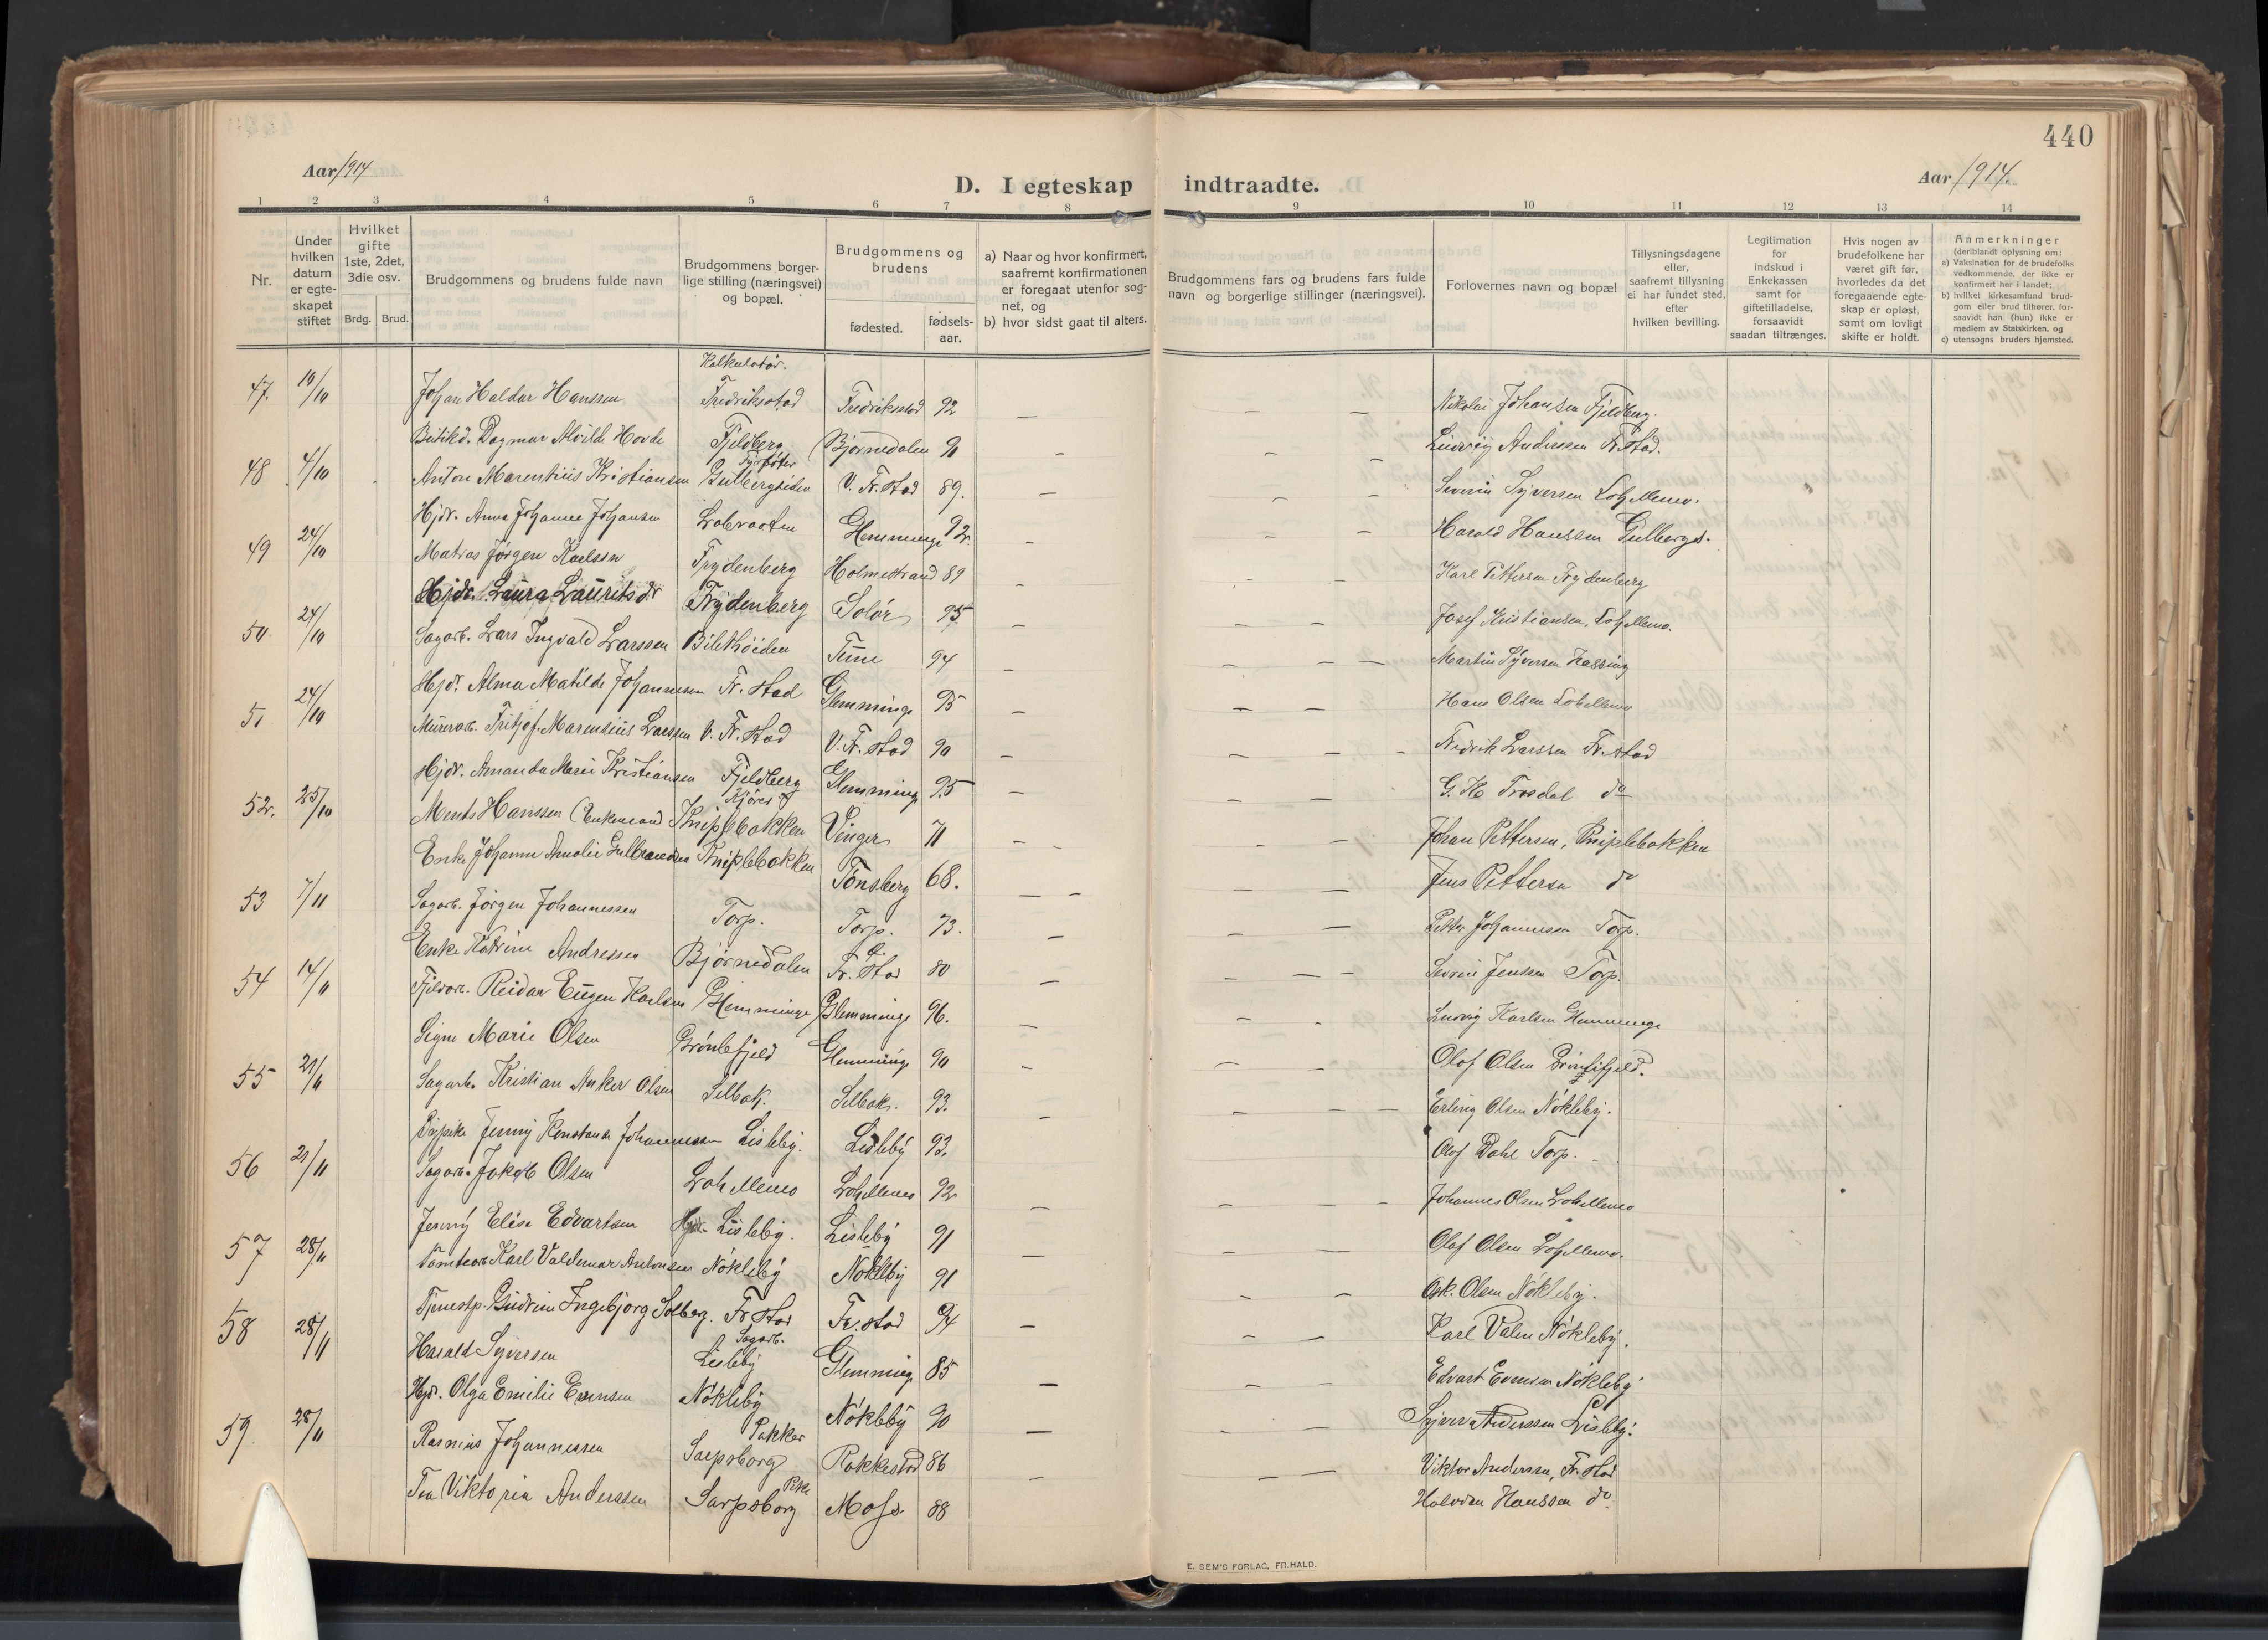 440
Aar 1914
Aar 1914.
D. I egteskap indtraadte.
1 2 3 4 5 6 7 8 9 10 11 12 13 14
Nr.
Under hvilken datum er egteskapet stiftet
Hvilket gifte 1ste, 2det, 3die osv.
Brdg. Brud.
Brudgommens og brudens fulde navn
Brudgommens borgerlige stilling (næringsvei) og bopæl.
Brudgommens og brudens
fødested.
fødselsaar.
a) Naar og hvor konfirmert, saafremt konfirmationen er foregaat utenfor sognet, og
b) hvor sidst gaat til alters.
Brudgommens fars og brudens fars fulde navn og borgerlige stillinger (næringsvei).
Forlovernes navn og bopæl
Tillysningsdagene eller, saafremt tillysning ei har fundet sted, efter hvilken bevilling.
Legitimation for indskud i Enkekassen samt for giftetilladelse, forsaavidt saadan tiltrænges.
Hvis nogen av brudefolkene har været gift før, hvorledes da det foregaaende egteskap er opløst, samt om lovligt skifte er holdt.
Anmerkninger
(deriblandt oplysning om:
a) Vaksination for de brudefolks vedkommende, der ikke er konfirmert her i landet;
b) hvilket kirkesamfund brudgom eller brud tilhører, forsaavidt han (hun) ikke er medlem av Statskirken, og
c) utensogns bruders hjemsted.
Kalkulatør.
47. 10/10 Johan Haldor Hanssen Fredriksstad Fredriksstad 92 — — — Nikolai Johansen Fjeldberg.
Butikd. Dagmar Alvilde Hovde Fjeldberg Bjørnedalen 91 — — — Ludvig Anderssen Fr.stad.
Fyrbøter
48 4/10 Anton Marentius Kristiansen Gulbergsiden V. Fr. stad 89. — — — Severin Syversen Lahellemo.
Hjdr. Anna Johanne Johansen Labraaten Glemminge 92. — — — Harald Hanssen Gulbergs.
49 24/10 Matros Jørgen Karlsen Frydenberg Holmestrand 89 — — — Karl Pettersen Frydenberg
Hjdr. Laura Lauritsdr Frydenberg Solør 95. — — — Josef Kristiansen, Lahellemo.
50 24/10 Sagarb. Lars Ingvald Larssen Time 94 — — — Martin Syversen
Hjdr. Alma Matilde Johannesen Fr. stad Glemminge 95 — — — Hans Olsen Lahellemo
51 24/10 Murerarb. Fritjof Marentius Larssen V. Fr. stad V. Fr. stad 90 — — — Fredrik Larssen Fr.stad
Hjdr. Amanda Marie Kristiansen Fjeldberg Glemminge 95 — — — G. H. Trosdal do
52. 25/10 Hanssen (Enkemand Kniplebakken Vinger 71 — — — Johan Pettersen, Kniplebakken
Enke Johanne Amalie Gulbrandsen Kniplebakken Tønsberg 68. — — — Jens Pettersen do
53 7/11 Sagarb. Jørgen Johannessen Torp. Torp. 73. — — — Petter Johannessen Torp.
Enke Katrine Andressen Bjørnedalen Fr. stad 80 — — — Severin Jenssen Torp.
54 14/11 Reidar Eugen Karlsen Glemminge Glemminge 96. — — Ludvig Karlsen Glemminge
Signe Marie Olsen Brønlefjeld Glemminge 90 — — — Olaf Olsen
55 21/11 Sagarb. Kristian Anker Olsen Selbak. Selbak. 93. — — — Erling Olsen Nøkleby.
Jenny Konstanse Johannessen Lisleby. Lisleby 93. Olaf Dahl Torp.
56 21/11 Sagarb. Jakob Olsen Lahellemo Lahellemo 92 — — Johannes Olsen Lahellemo
Jenny Elise Edvartsen Hjdr. Lisleby. Lisleby 91 — — — Olaf Olsen Lahellemo.
57 28/11 Tomtearb. Karl Valdemar Antonsen Nøkleby Nøkleby 91 — — Osk. Olsen Nøkleby.
Tjenestp. Gudrun Ingebjorg Solberg. Fr. stad Fr. stad 94 — — — Karl Valen Nøkleby.
Sagarb.
58 28/11 Harald Syversen Lisleby Glemminge 85 — — — Edvart Evensen Nøkleby
Hjdr. Olga Emilie Evensen Nøkleby Nøkleby 90 — — — Syver Anderssen Lisleby.
Pakker
59. 28/11 Rasmus Johannessen Sarpsborg Rakkestad 86 — — — Viktor Anderssen, Fr. stad
Tea Viktoria Anderssen Sarpsborg Moss. 88 Halvdan Hanssen do
E. SEM'S FORLAG, FR.HALD.